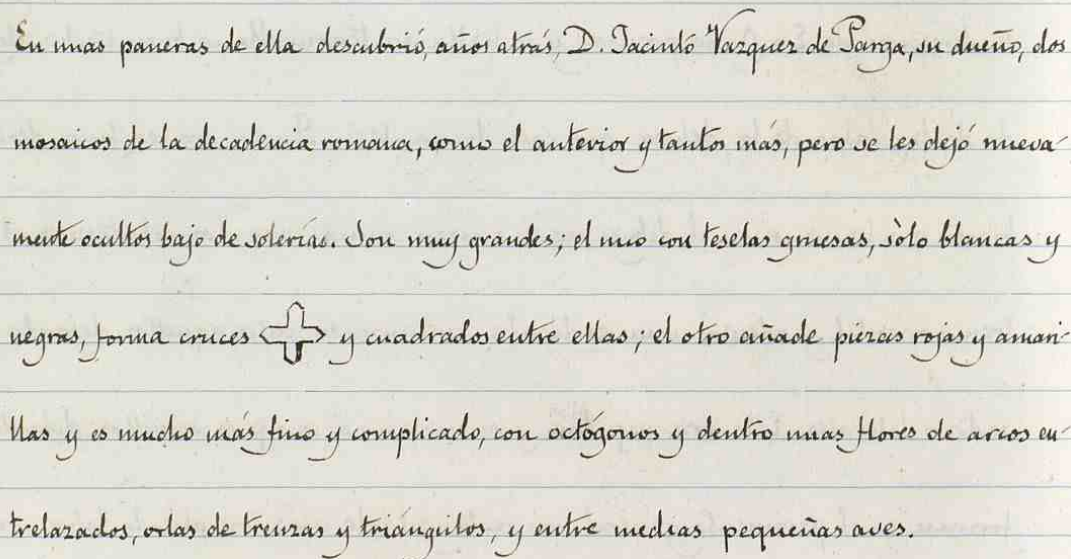 En unas paneras de ella descubrió, años atrás, D. Jacinto Vazquez de Parga, su dueño, dos
mosaicos de la decadencia romana, como el anterior y tantos más, pero se les dejó nueva-
mente ocultos bajo de solerías. Son muy grandes; el uno con teselas gruesas, sòlo blancas y
negras, forma cruces y cuadrados entre ellas; el otro añade piezas rojas y amari-
llas y es mucho más fino y complicado, con octógonos y dentro unas flores de arcos en-
trelazados, orlas de trenzas y triángulos, y entre medias pequeñas aves.